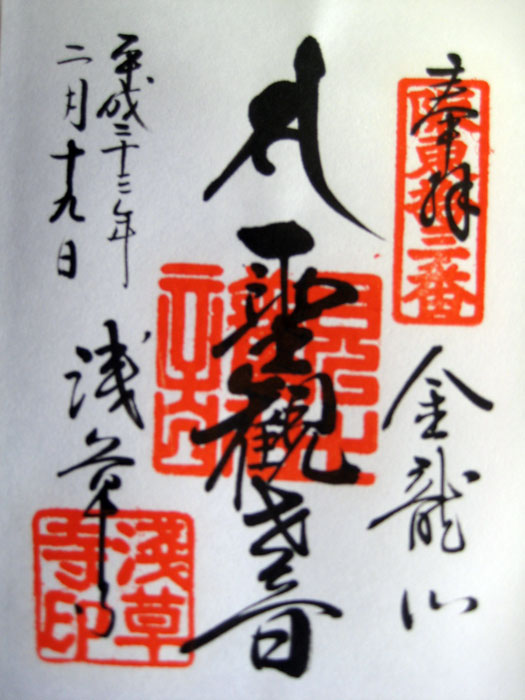 奉拝
坂東拾三番
金龍山
聖観世音
浅草寺
浅草寺印
平成二十三年
二月十九日